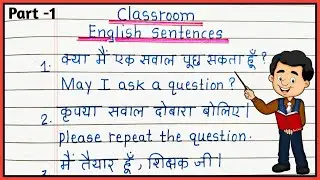 Part -1
Classroom
English Sentences
1. क्या मैं एक सवाल पूछ सकता हूँ ?
May I ask a question?
2. कृपया सवाल दोबारा बोलिए।
please repeat the question.
मैं तैयार हूँ , शिक्षक जी।